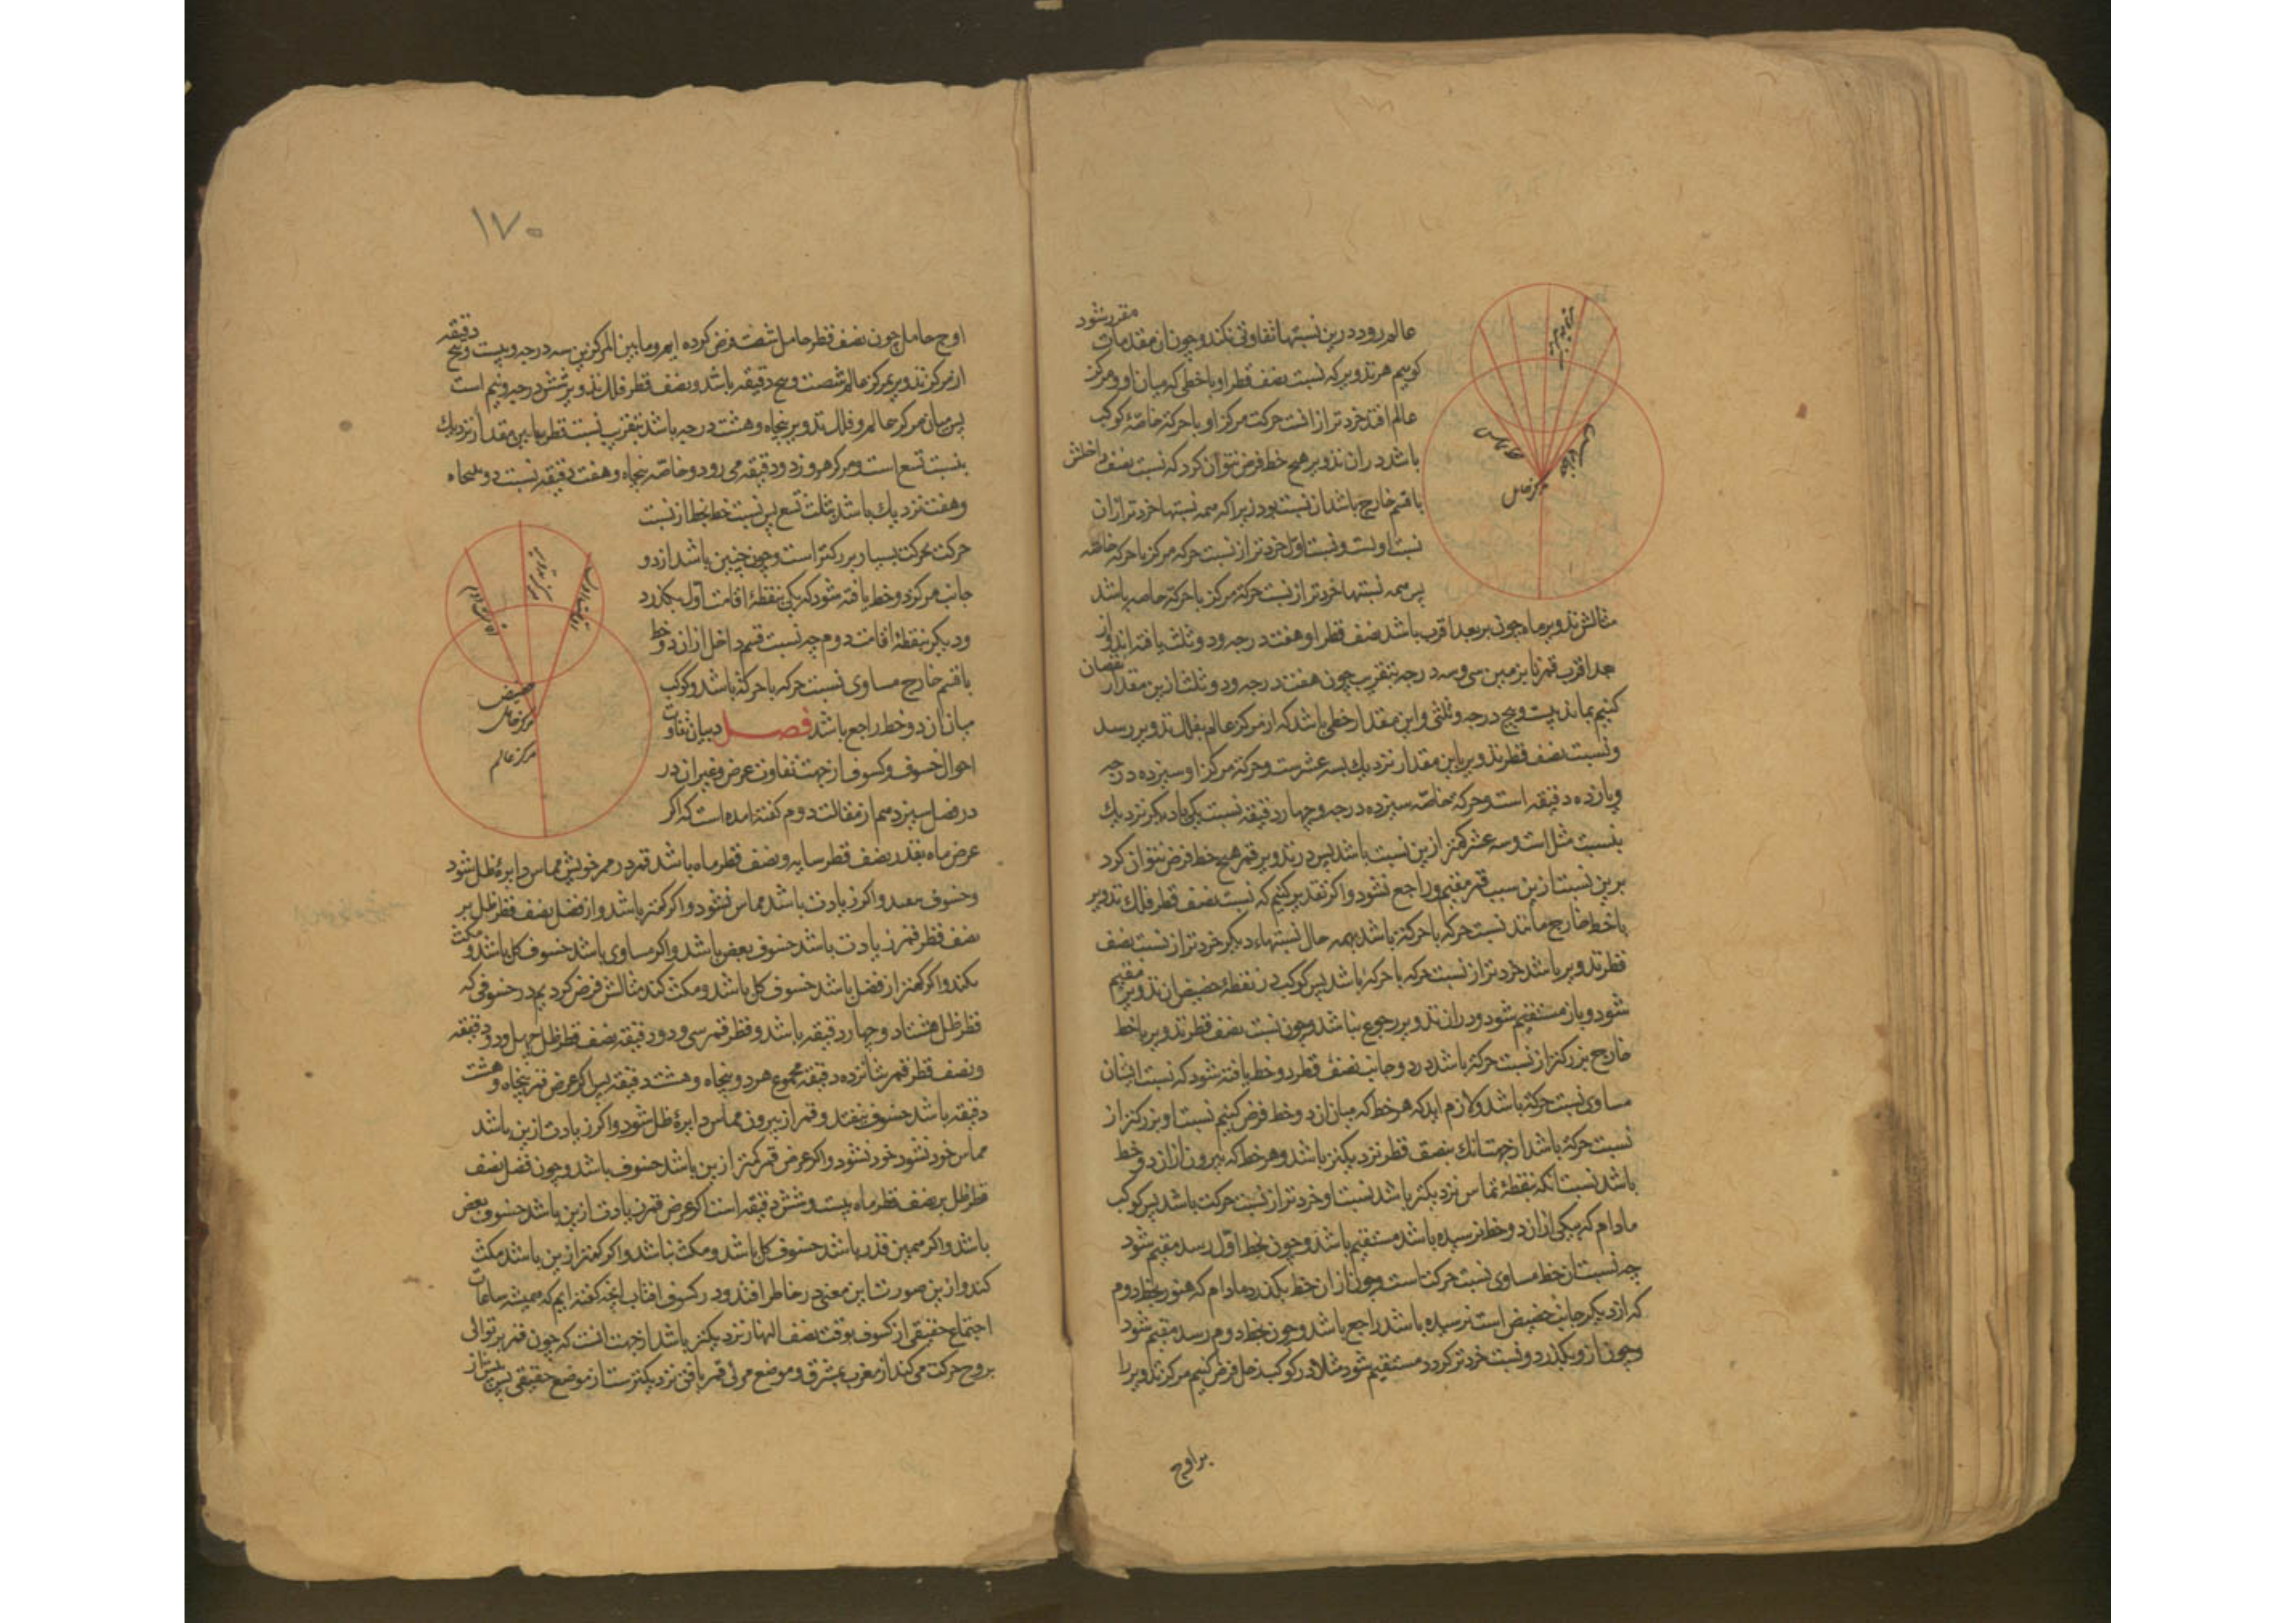 عالم رود درین نسبتها تفاوتی نکند و چون ان مقدمات مقرر شود
کوییم هر تدویر که نسبت نصف قطر او با خطی که میان او و مرکز
عالم افتد خردتر از انست حرکت مرکز او با حرکة خاصۀ کوکب
باشد در ان تدویر هیچ خط فرض نتوان کرد که نسبت نصف داخلش
با قسم خارج باشد از نسبت بود زیرا که همه نسبتها خردتر از ان
نسبت اوست و نسبت اول خردتر از نسبت حرکة مرکز با حرکة خاصه
پس همه نسبتها خردتر از نسبت حرکة مرکز با حرکة خاصه باشد
مثالش تدویر ماه چون بر بعد اقرب باشد نصف قطر او هفت درجه و دو ثلث یافته اند و از
بعد اقرب قمر تا بزمین سی و سه درجه بتقریب چون هفت درجه و دو ثلث ازین مقدار نقصان
کنیم بماند بیست و پنج درجه و ثلثی و این مقدار خطی باشد که از مرکز عالم بفلک تدویر رسد
و نسبت نصف قطر تدویر باین مقدار نزدیك بسه عشرست و حرکة مرکز او سیزده درجه
و یازده دقیقه است و حرکة خاصه سیزده درجه و چهار دقیقه نسبت یکی با دیکر نزدیك
بنسبت مثل است و سه عشر کمتر ازین نسبت باشد پس در تدویر قمر هیچ خط فرض نتوان کرد
برین نسبت ازین سبب قمر مقیم و راجع نشود و اکر تقدیر کنیم که نسبت نصف قطر فلك تدویر
با خط خارج مانند نسبت حرکة با حرکة باشد بهمه حال نسبتهاء دیکر خردتر از نسبت نصف
قطر تدویر باشد خردتر از نسبت حرکة با حرکة باشد پس کوکب در نقطۀ حضیض ان تدویر مقیم
شود و باز مستقیم شود و در ان تدویر رجوع نباشد و چون نسبت نصف قطر تدویر با خط
خارج بزرکتر از نسبت حرکة باشد در دو جانب نصف قطر دو خط یافته شود که نسبت ایشان
مساوی نسبت حرکة باشد و لازم اید که هر خط که میان ان دو خط فرض کنیم نسبت او بزرکتر از
نسبت حرکة باشد از جهت انك بنصف قطر نزدیکتر باشد و هر خط که بیرون از ان دو خط
باشد نسبت انکه بنقطۀ تماس نزدیکتر باشد نسبت او خردتر از نسبت حرکت باشد پس کوکب
مادام که بیکی از ان دو خط نرسیده باشد مستقیم باشد و چون بخط اول رسد مقیم شود
چه نسبت ان خط مساوی نسبت حرکت است و چون از ان خط بکذرد مادام که هنوز بخط دوم
که از دیکر جانب حضیض است نرسیده باشد راجع باشد و چون بخط دوم رسد مقیم شود
و چون از و بکذرد و نسبت خردتر کردد مستقیم شود مثلا در کوکب زحل فرض کنیم مرکز تدویر را
بر اوج
مرکز حامل
۱۷۰
اوج حامل چون نصف قطر حامل شصت فرض کرده ایم و ما بین المرکزین سه درجه و بیست و پنج دقیقه
از مرکز تدویر بمرکز عالم شصت و سه و پنج دقیقه باشد و نصف قطر فلك تدویر شش درجه و نیم است
پس میان مرکز عالم و فلك تدویر پنجاه و هشت درجه باشد بتقریب نسبت قطر بباین مقدار نزدیك
بنسبت تسع است و مرکز هر روز دو دقیقه می رود و خاصه پنجاه و هفت دقیقه نسبت دو بپنجاه
و هفت نزدیك باشد بثلث تسع پس نسبت خط بخط از نسبت
حرکت بحرکت بسیار بزرکتر است و چون چنین باشد از دو
جانب مرکز دو خط یافته شود که یکی بنقطۀ اقامت اول بکذرد
و دیکر بنقطۀ اقامت دوم چه نسبت قسم داخل از ان دو خط
با قسم خارج مساوی نسبت حرکة با حرکة باشد و کوکب
میان ان دو خط راجع باشد فصل در بیان تفاوت
احوال خسوف و کسوف از جهت تفاوت عرض و غیر ان در
در فصل سیزدهم از مقالت دوم کفته امده است که اکر
عرض ماه بقدر نصف قطر سایه و نصف قطر ماه باشد قمر در ممر خویش مماس دایرۀ ظل شود
و خسوف نیفتد و اکر زیادت باشد مماس نشود و اکر کمتر باشد و از فضل نصف قطر ظل بر
نصف قطر قمر زیادت باشد خسوف بعض باشد و اکر مساوی باشد خسوف کل باشد و مکث
نکند و اکر کمتر از فضل باشد خسوف کل باشد و مکث کند مثالش فرض کردیم در خسوفی که
قطر ظل هشتاد و چهار دقیقه باشد و قطر قمر سی و دو دقیقه نصف قطر ظل چهل و دو دقیقه
و نصف قطر قمر شانزده دقیقه مجموع هر دو پنجاه و هشت دقیقه پس اکر عرض قمر پنجاه و هشت
دقیقه باشد خسوف نیفتد و قمر از بیرون مماس دایرۀ ظل شود و اکر زیادت ازین باشد
مماس خود نشود خود نشود و اکر عرض قمر کمتر ازین باشد خسوف باشد و چون فضل نصف
قطر ظل بر نصف قطر ماه بیست و شش دقیقه است اکر عرض قمر زیادت ازین باشد خسوف بعض
باشد و اکر همین قدر باشد خسوف کل باشد و مکث نباشد و اکر کمتر ازین باشد مکث
کند و ازین صورت این معنی در خاطر افتد و در کسوف افتاب انچه کفته ایم که همیشه ساعات
اجتماع حقیقی از کسوف بوقت نصف النهار نزدیکتر باشد از جهت انست که چون قمر بر توالی
بروج حرکت می کند از مغرب بمشرق و موضع مرئی قمر بافق نزدیکترست از موضع حقیقی پس پیش از
حضیض
مرکز حامل
مرکز عالم